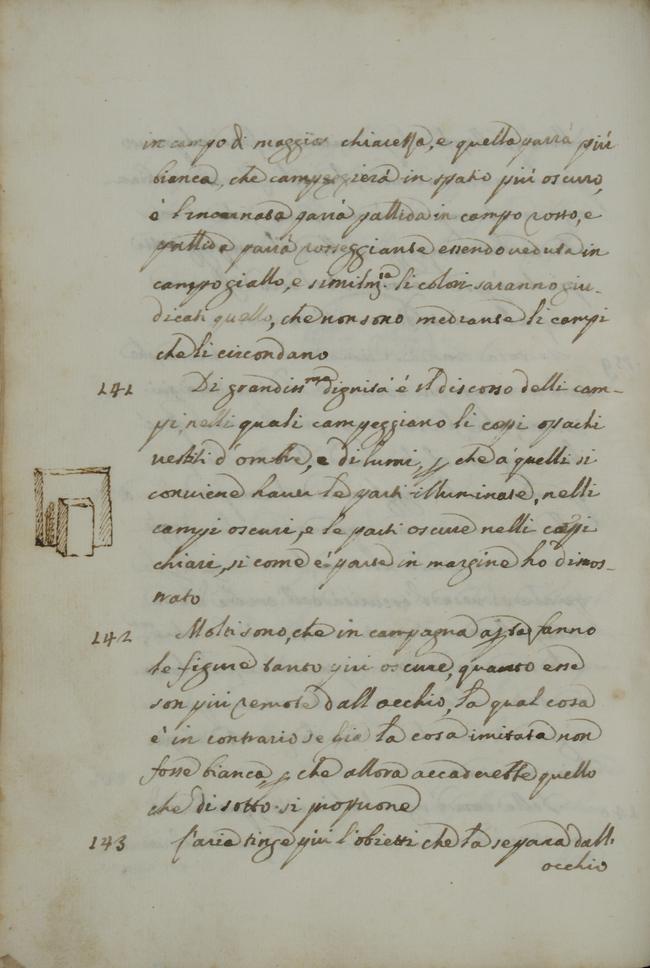 in campo di maggior chiarezza, e quella parrà più
bianca, che campeggierà in spatio più oscuro,
è l'incarnata parrà pallida in campo rosso, e
pallida parrà rosseggiante essendo veduta in
campo giallo, e similm.te li colori saranno giu-
dicati quello, che non sono mediante li campi
che li circondano
141 Di grandiss.ma dignità é il discorso delli cam-
pi, nelli quali campeggiano li corpi opachi
vestiti d'ombre, e di lumi, che à quelli si
conviene haver le parti illuminate, nelli
campi oscuri, e le parti oscure nelli campi
chiari, si come é parte in margine ho dimos-
trato
142 Molti sono, che in campagna aperta fanno
le figure tanto più oscure, quanto esse
son più remote dall occhio, la qual cosa
è in contrario se già la cosa imitata non
fosse bianca, che allora accaderebbe quello
che di sotto si propone
143 L'aria tinge più l'obietti che la separa dall'
occhio